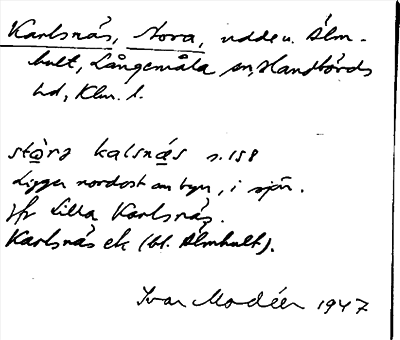 Karlsnäs, Stora, udde u. Älm-
hult, Långemåla sn, Handbörds
hd, Klm. l.
stòrɔ kalsnä́s s. 158
Ligger nordost om byn, i sjön.
Jfr Lilla Karlsnäs.
Karlsnäs ek (bl. Älmhult).
Ivar Modéer 1947